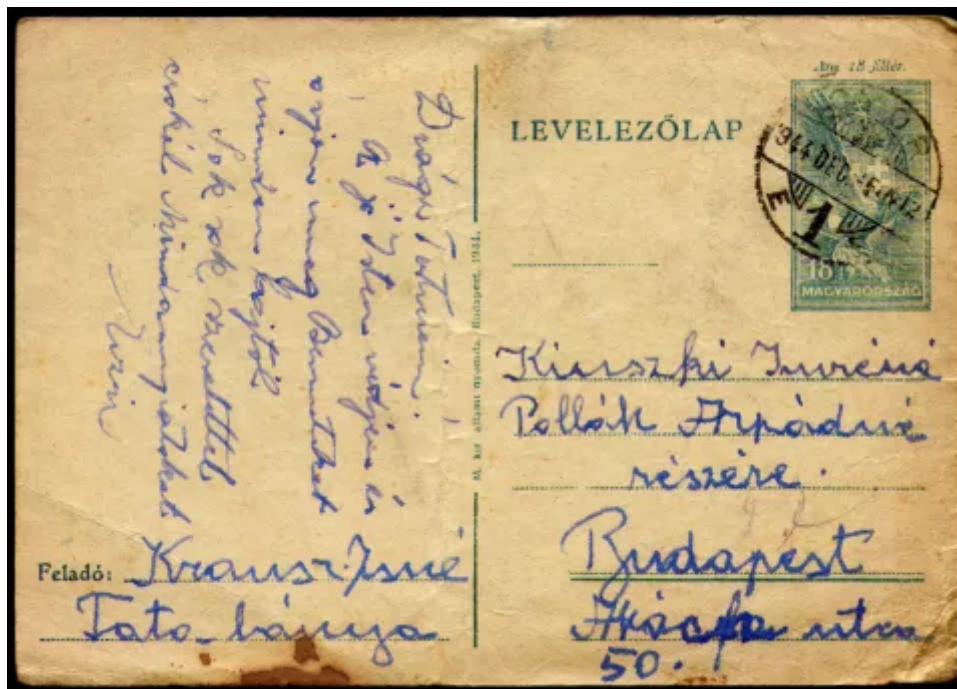 Drága Totmein!
Az jó Isten védjen és
óvjon meg Bennteket
minden bajtól
Sok sok szeretettel
csókol Mindannyiatokat
Feladó: Krausz Jsné
Tata-bánya
M. kir. állami nyomda, Budapest, 1944.
Ára 18 fillér.
LEVELEZŐLAP
944 DEC.
E 1
18
MAGYARORSZÁG
Pollák Árpádné
részére.
Budapest
Akácfa utca
50.